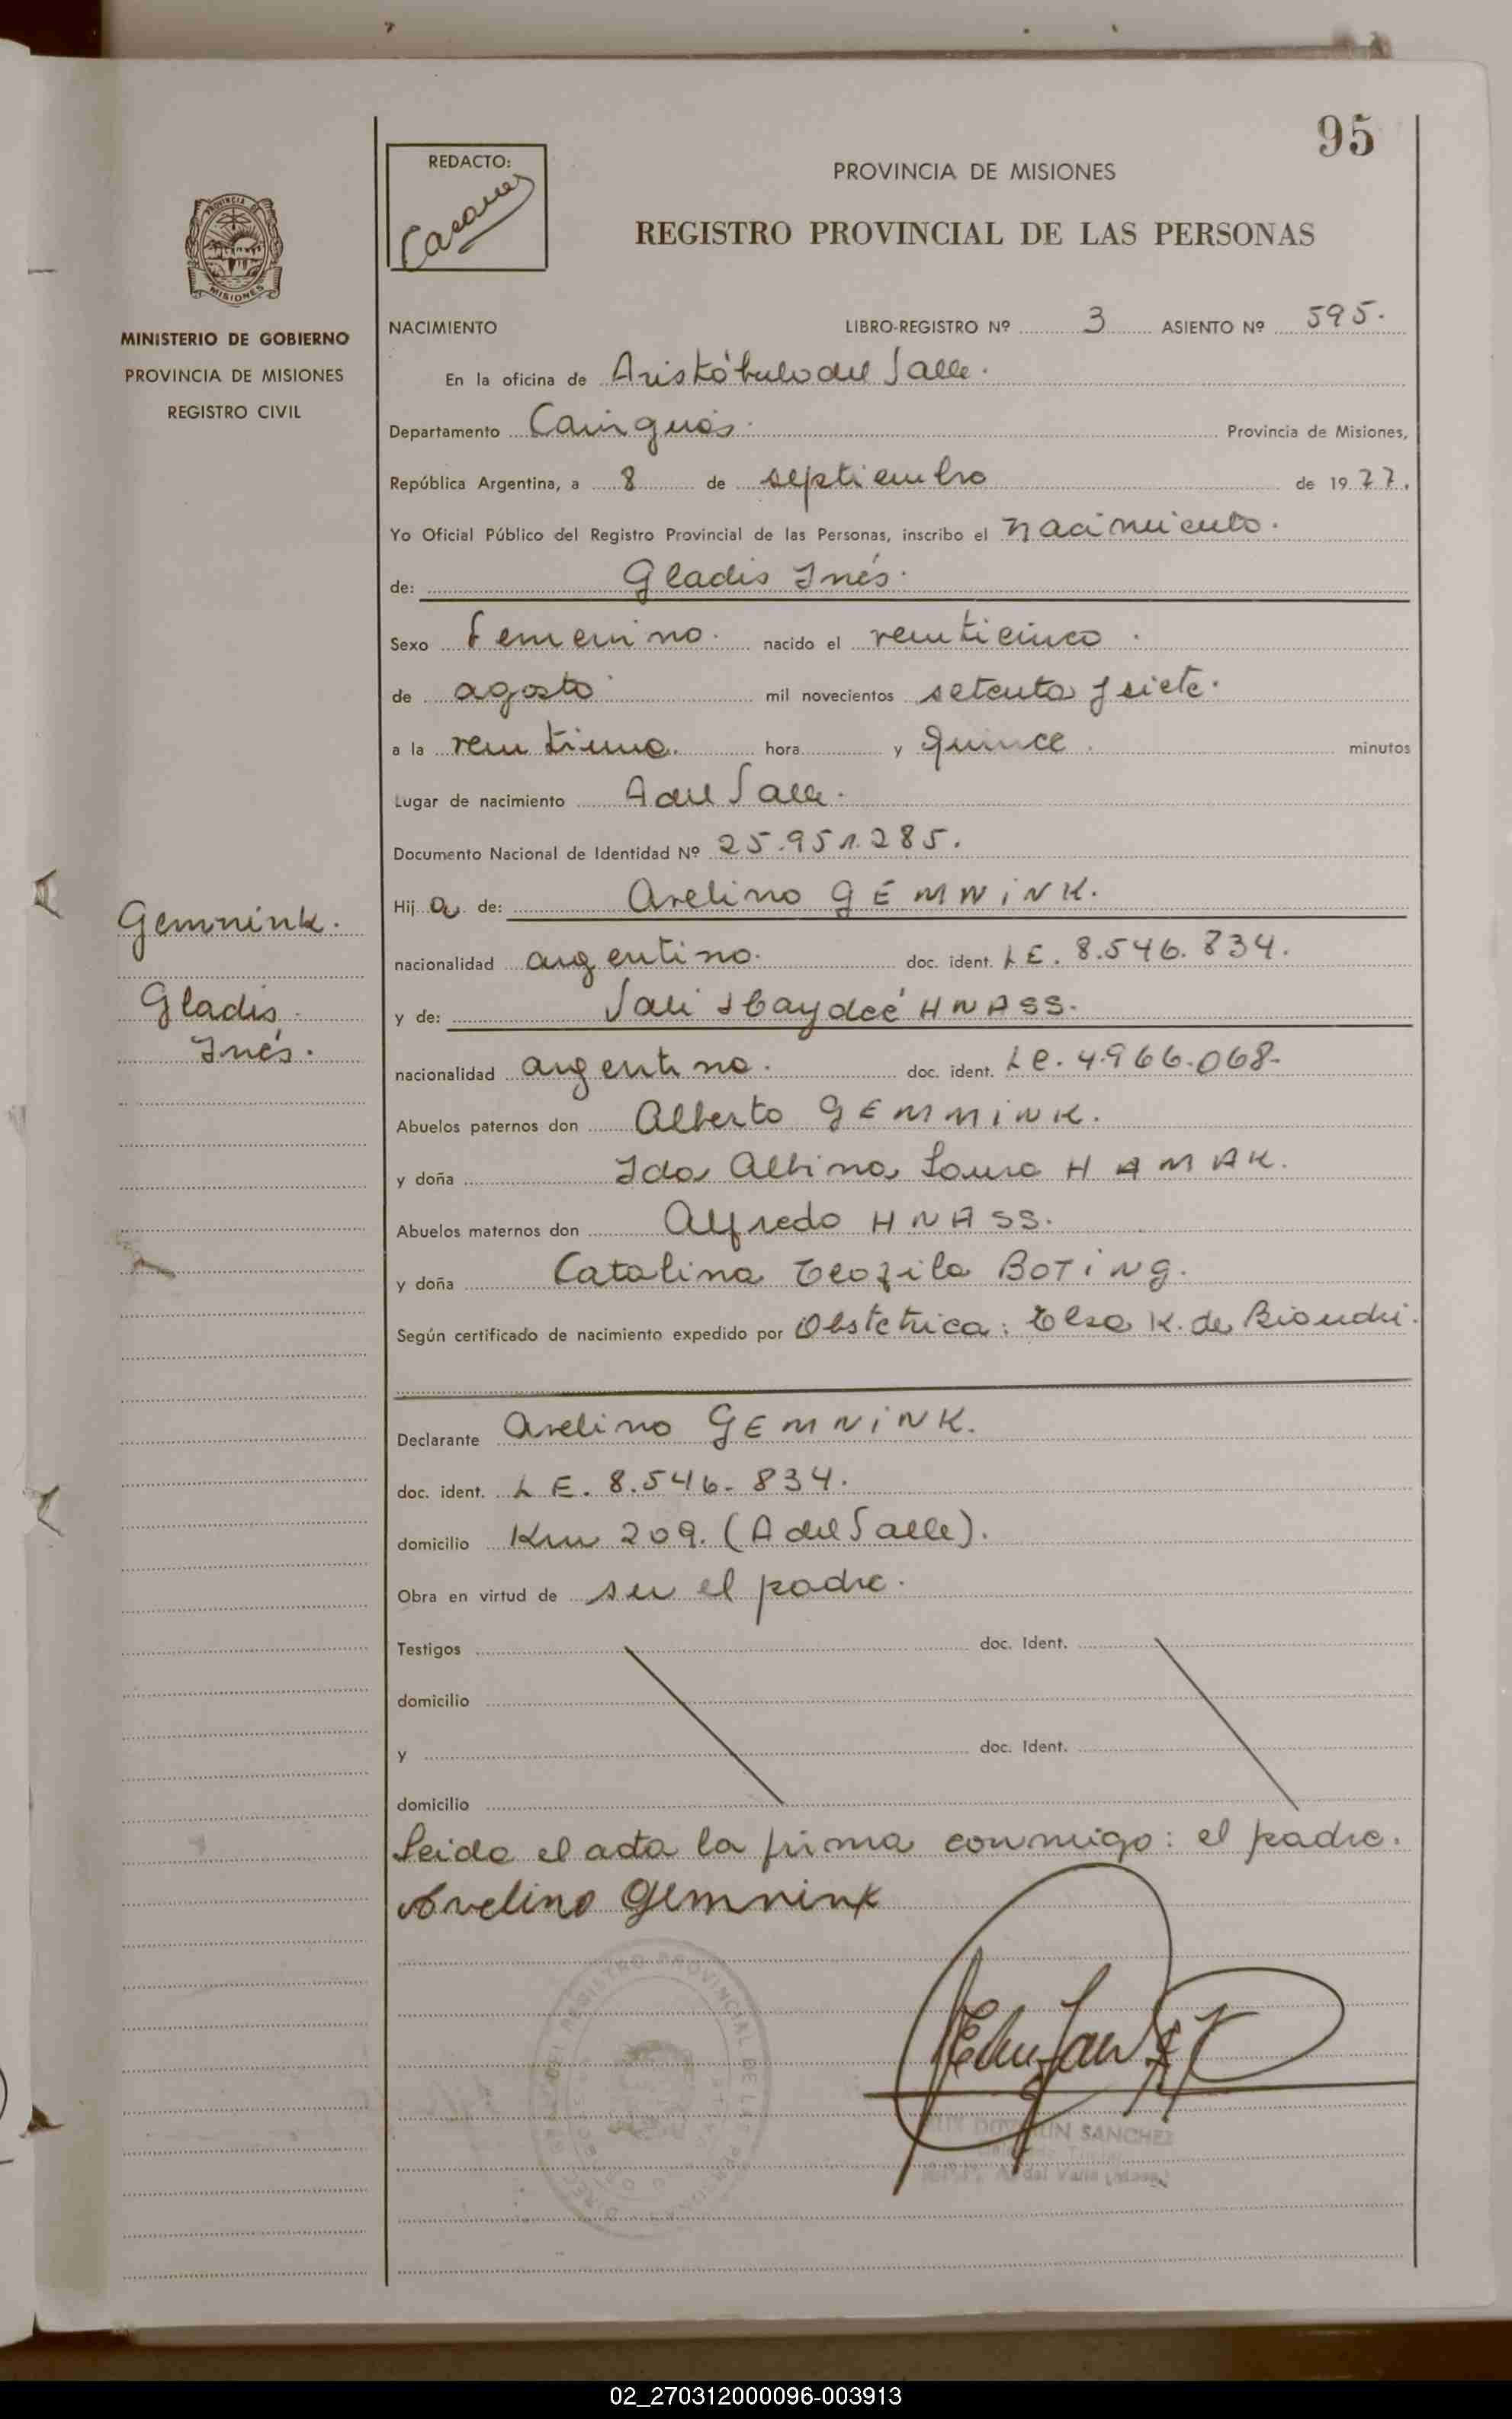 95
REDACTO:
PROVINCIA DE MISIONES
REGISTRO PROVINCIAL DE LAS PERSONAS
MISIONES
MINISTERIO DE GOBIERNO
PROVINCIA DE MISIONES
REGISTRO CIVIL
NACIMIENTO LIBRO-REGISTRO Nº 3 ASIENTO Nº 595.
En la oficina de Aristóbulo del Valle.
Departamento Cainguás. Provincia de Misiones,
República Argentina, a 8 de septiembre de 1977.
Yo Oficial Público del Registro Provincial de las Personas, inscribo el nacimiento.
de: Gladis Inés.
Sexo femenino. nacido el veinticinco.
de agosto mil novecientos setenta y siete.
a la veintiuna. hora y quince. minutos
Lugar de nacimiento A del Valle.
Documento Nacional de Identidad Nº 25.951.285.
Hij a de: Avelino GEMNINK.
nacionalidad argentino. doc. ident. LE. 8.546.834.
y de: Haydeé HNASS.
nacionalidad argentina. doc. ident. LC. 4.966.068.
Abuelos paternos don Alberto GEMNINK.
y doña Ida Albina Laura HAMAK.
Abuelos maternos don Alfredo HNASS.
y doña Catalina Teofila BOTING.
Según certificado de nacimiento expedido por Obstetrica: Elsa K. de Biondi.
Declarante Avelino GEMNINK.
doc. ident. LE. 8.546.834.
domicilio Km 209. (A del Valle).
Obra en virtud de ser el padre.
Testigos doc. Ident.
domicilio
y doc. Ident.
domicilio
Leida el acta la firma conmigo: el padre.
Avelino Gemnink
Gemnink.
Gladis
Inés.
SANCHEZ
02_270312000096-003913